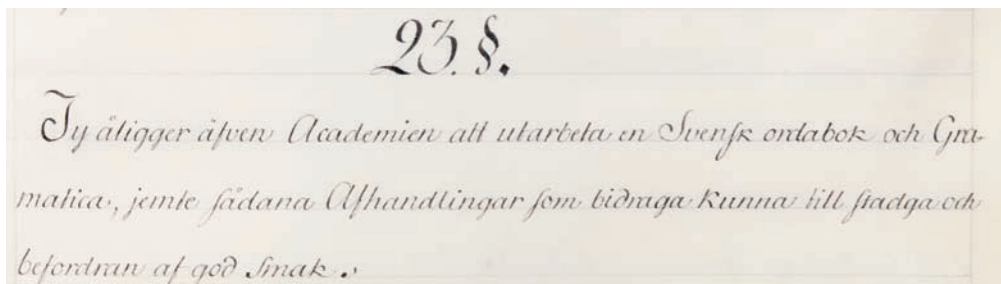 23. §.
Ty åligger äfven Academien att utarbeta en Svensk ordabok och Gra-
matica, jemte sådana Afhandlingar som bidraga kunna till stadga och
befordran af god Smak.